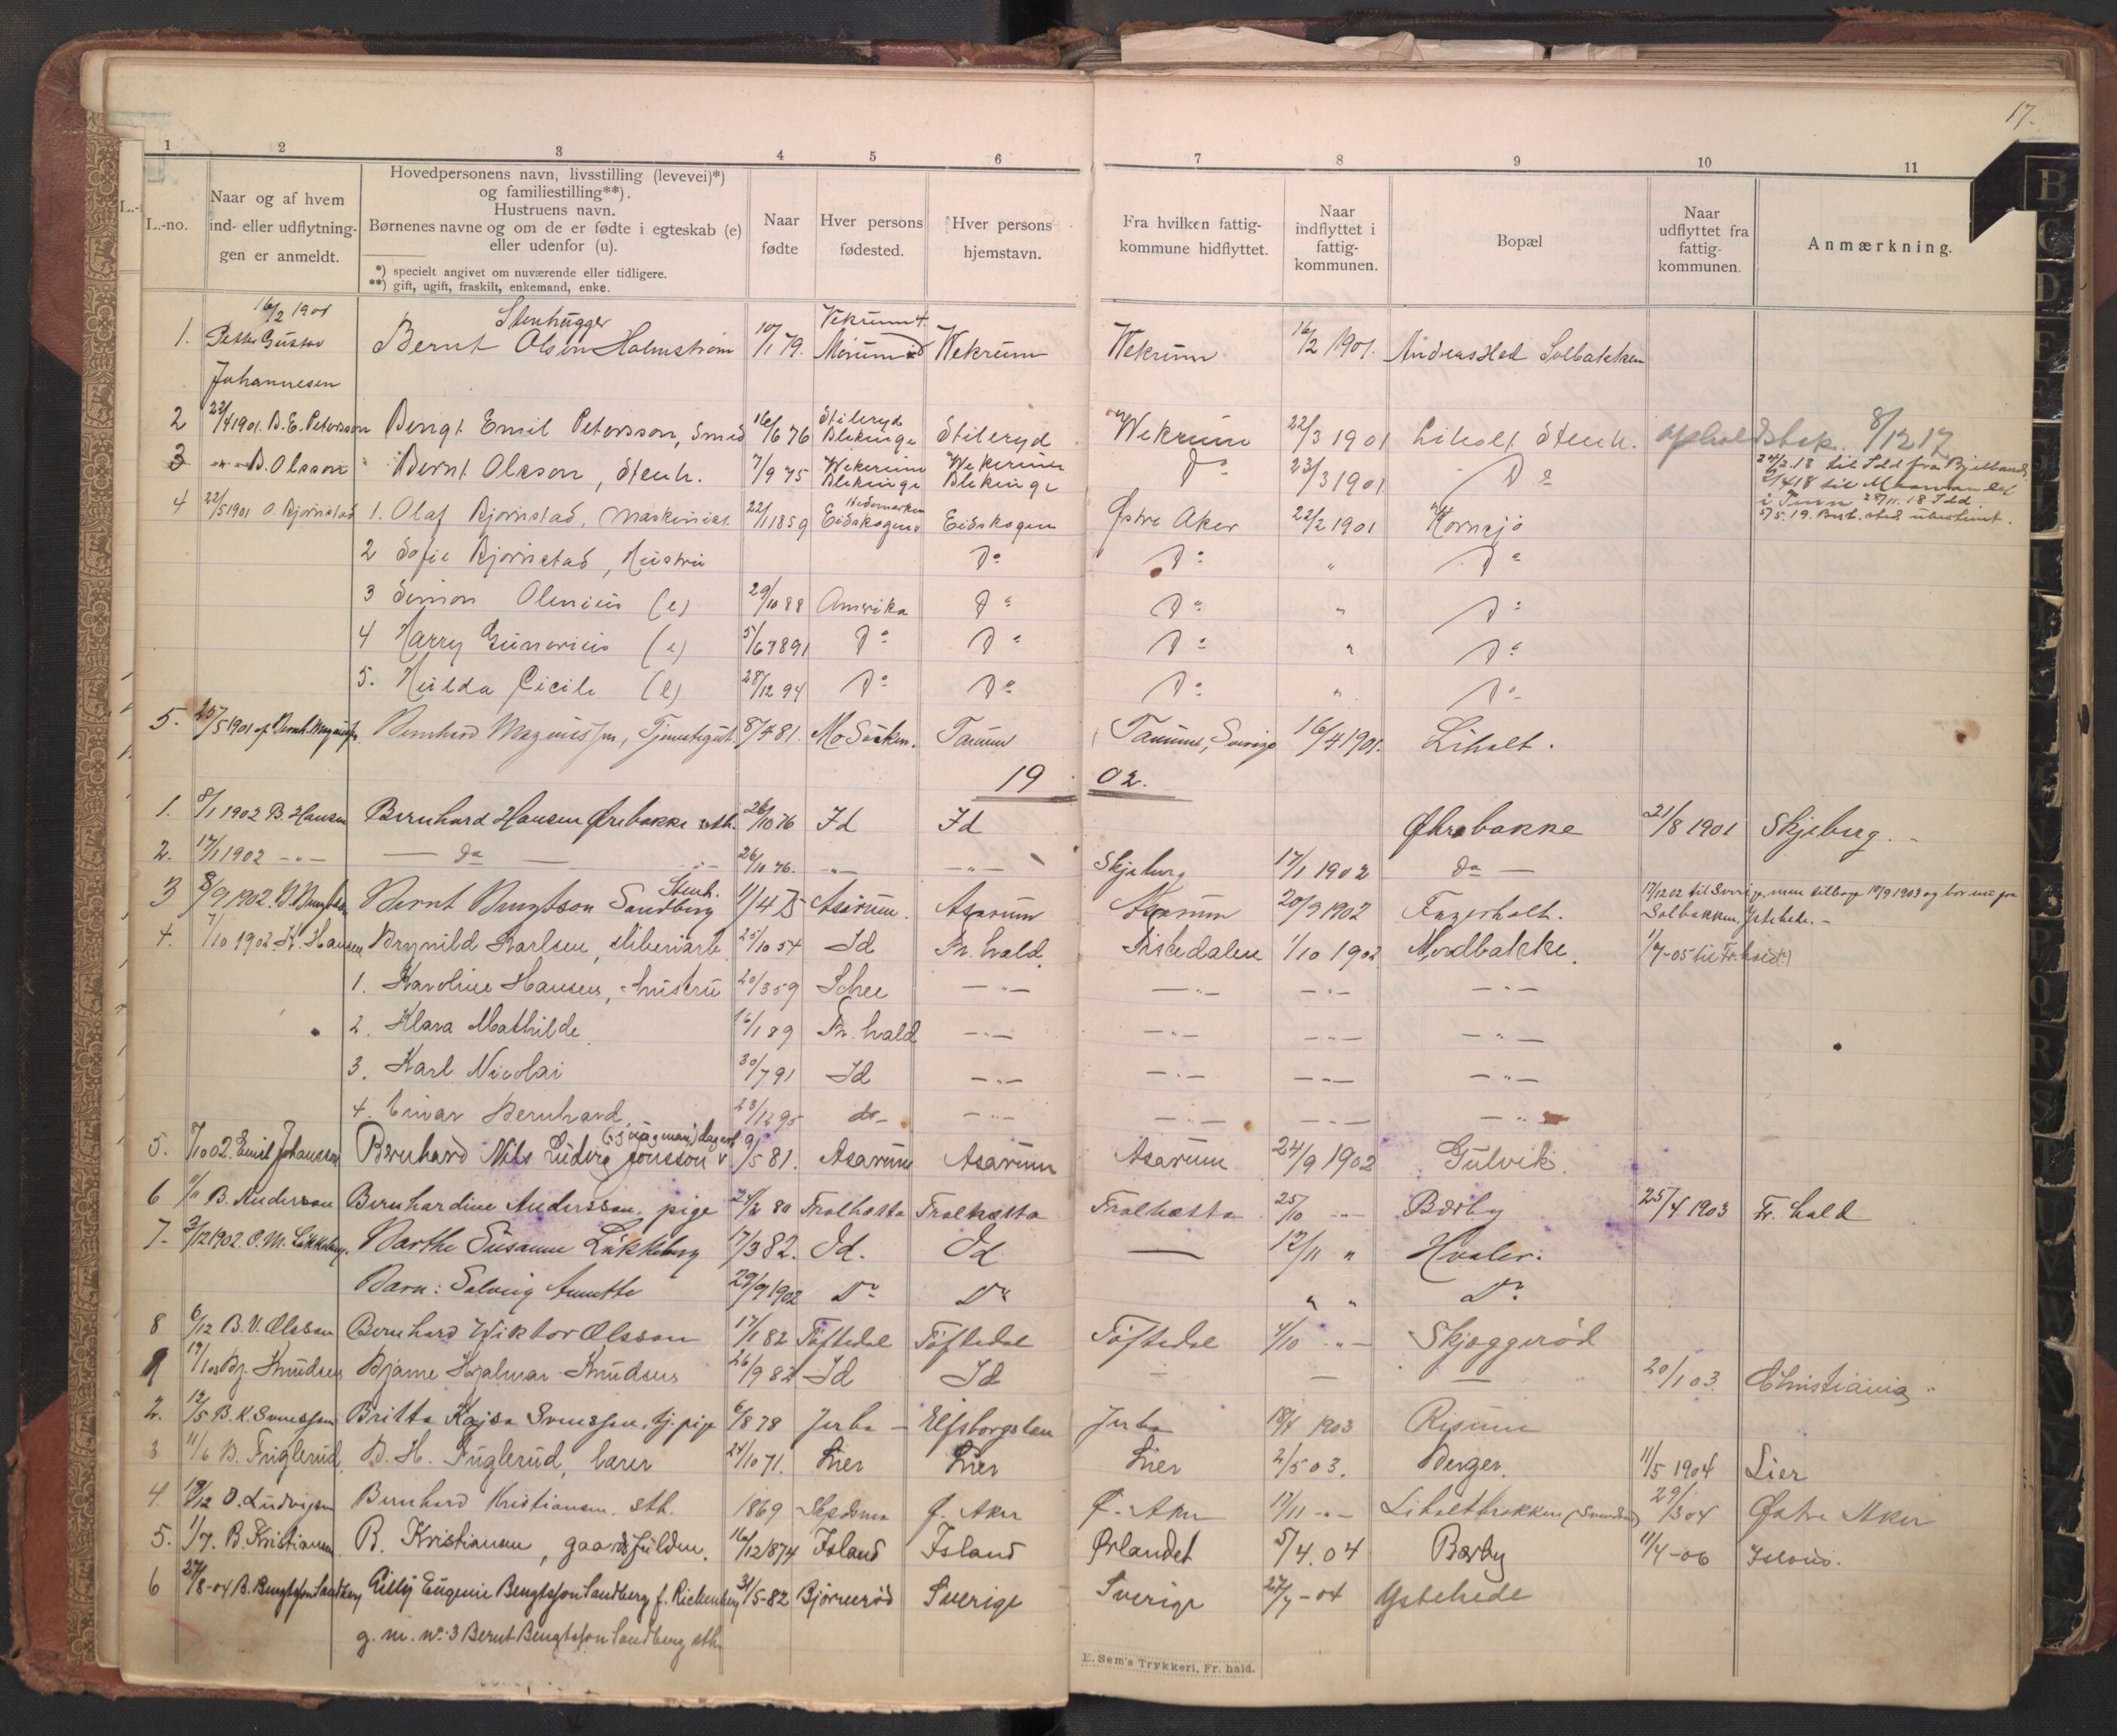 17.
1 2 3 4 5 6 7 8 9 10 11
L.-no.
Naar og af hvem
ind- eller udflytnin-
gen er anmeldt.
Hovedpersonens navn, livsstilling (levevei)*)
og familiestilling**).
Hustruens navn.
Børnenes navne og om de er fødte i egteskab (e)
eller udenfor (u).
*) specielt angivet om nuværende eller tidligere.
**) gift, ugift, fraskilt, enkemand, enke.
Naar
fødte
Hver persons
fødested.
Hver persons
hjemstavn.
Fra hvilken fattig-
kommune hidflyttet.
Naar
indflyttet i
fattig-
kommunen.
Bopæl
Naar
udflyttet fra
fattig-
kommunen.
Anmærkning.
16/2 1901 Stenhugger Vekrum
1. Petter Gustav Bernt Olsen Holmstrøm 10/1 79. Mörum Wekrum Wekrum 16/2 1901. Andreas Hed Solbakken
Johannesen
2 22/4 1901. B. E. Petersson Bengt Emil Petersson, Smed 16/6 76 Stileryd Blekinge Stileryd Wekrum 22/3 1901 Liholt Stenh. opholdsbok. 8/12 17
3 B. Olsson Bernt Olsson, Stenh. 7/9 75 Wekerum Blekinge Wekerum Blekinge Do 23/3 1901 Do
4 22/5 1901 O. Bjørnstad 1. Olaf Bjørnstad, Maskinist 22/1 1859 Hedemarken Eidskogen Eidskogen Østre Aker 22/2 1901 Kornsjø
2 Sofie Bjørnstad, Hustru Do Do " Do
3 Simon Olenius (e) 29/10 88 Amerika Do Do " Do
4 Harry Gunerius (e) 5/6 1891 Do Do Do " Do
5. Hulda Cicile (e) 28/12 94 Do Do Do " Do
5. 25/5 1901 af Bernh. Magnusson Bernhard Magnusson, Tjenestegut 8/4 81. Mo Socken. Tanum Tanum, Sverige 16/4 1901. Liholt.
1902.
1. 8/1 1902 B. Hansen Bernhard Hansen Ørebakke sth. 26/10 76 Id Id Øhrebakke 21/8 1901 Skjeberg. -
2. 17/1 1902 - " - - da - 26/10 76. - " - - " - Skjeberg 17/1 1902 - da -
3 8/9 1902. B. Bengtson Bernt Bengtson Sandberg Stenh. 11/4 75 Asarum. Asarum Asarum 20/9 1902 Fagerholt. 17/12 02 til Sverige, men tilbage 10/9 1903 og bor nu paa
Solbakken, Ystehede. -
4. 7/10 1902. K. Hansen Brynild Karlsen, sliberiarb. 25/10 54 Id Fr. hald. Tistedalen 1/10 1902 Nordbakke. 1/7-05 til Fr. hald.
1. Karoline Hansen, hustru 20/3 59 - " - - " - - " - - " -
2. Klara Mathilde 16/1 89 Fr. hald - " - - " - - " - - " -
3. Karl Nicolai 30/7 91 Id - " - - " - - " - - " -
4. Einar Bernhard 23/12 95 do - " - - " - - " - - " -
5. 7/10 02. Emil Johansson Bernhard Nils Ludvig Jonsson 9/5 81. Asarum Asarum Asarum 24/9 1902 Gulvik.
6 B. Anderson Bernhardine Andersson. pige 24/2 80 Trolhatta Trolhatta Trolhatta 25/10 - " - Børby 25/4 1903 Fr. hald
7. 3/12 1902. O. M. Løkkeberg. Barthe Susanne Løkkeberg 17/3 82. Id. Id — 12/11 " Hvaler.
Barn: Solveig Annette 29/9 1902 Do Do " " Do
8 6/12 B. V. Olsson Bernhard Wiktor Olsson 17/1 82 Töftedal Töftedal Töftedal 4/10 - " - Skjoggerød
1 19/1 03 Bj. Knudsen Bjarne Hjalmar Knudsen 26/9 82 Id Id — — — 20/1 03. Christiania
2. 12/5 B. K. Svensson Britta Kajsa Svensson, tj. pige 6/8 78 Elfsborgslan 1903 Risum
3 11/6 B. Fuglerud. B. H. Fuglerud, lærer 24/10 71. Lier Lier Lier 2/5 03. Berger. 11/5 1904 Lier
4. 19/12 O. Ludvigsen Bernhard Kristiansen. sth. 1869 Ø. Aker Ø. Aker 17/11 - " - Liholtbrakken 29/3 04 Østre Aker
5. 1/7. B. Kristiansen B. Kristiansen, gaardsfulden. 16/12 1874 Island Island Ørlandet 5/4. 04 Børby 11/4-06
6 27/8-04 B. Bengtsson Sandberg Gilly Eugenie Bengtsson Sandberg f. 31/5-82 Björnerød Sverige Sverige 27/7-04 Ystehede
g. m. no. 3 Bernt Bengtsson Sandberg sth.
E. Sem's Trykkeri, Fr. hald.